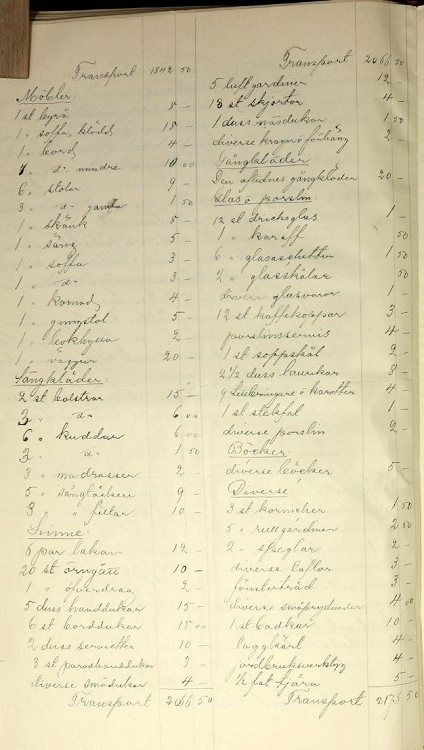 Transport 1842 50
Möbler:
1 st byrå 8 -
1 " soffa, klädd 18 -
1 " bord 4 -
1 " d:o mindre 10 00
6 " stolar 9 -
3 " d:o gamla 1 50
1 " skänk 5 -
1 " säng 5 -
1 " soffa 3 -
1 " d:o 3 -
1 " komod 4 -
1 " gungstol 5 -
1 " bokhylla 2 -
1 " väggur 20 -
Sängkläder:
2 st bolstrar 15 -
3 " d:o 6 00
6 " kuddar 6 00
3 " d:o 1 50
3 " madrasser 2 -
5 " 9 -
3 " " filtar 10 -
Linne:
6 par lakan 12 -
20 st örngått 10 -
1 " öfverdrag 2 -
5 duss handdukar 15 -
6 st borddukar 15 00
2 duss servietter 10 -
3 st paradhanddukar 3 -
diverse smådukar 4 -
Transport 2066 50
Transport 2066 50
5 luftgardiner 12 -
18 st skjortor 4 -
1 duss näsdukar 1 50
diverse kragar o förhäng 2 -
Gångkläder
Den aflidnes gångkläder 20 -
Glas o porslin
12 st dricksglas 1 -
1 " karaff 50
6 " glasassietter 1 50
2 " glasskålar 50
divere glasvaror 1 -
12 st kaffekoppar 3 -
porslinsservis 4 -
1 st soppskål 2 -
2 1/2 duss taurikar 8 -
4 o karotter 4 -
1 st stekfat 1 -
diverse porslin 2 -
Böcker
diverse böcker 5 -
Diverse
3 st kornischer 1 50
5 " rullgardiner 2 50
2 " speglar 2 -
diverse taflor 3 -
fönsterträd 3 -
diverse småprydnader 4 00
1 st badkar 10 -
baggkärl 4 -
jordbruksverktyg 4 -
1/2 fat tjära 5 -
Transport 2178 50